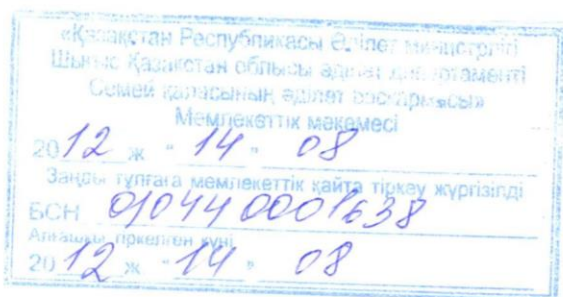 «Қазақстан Республикасы Әділет министрлігі
Шығыс Қазақстан облысы әділет департаменті
Семей қаласының әділет басқармасы»
Мемлекеттік мекемесі
2012 ж "14" 08
Заңды тұлғаға мемлекеттік қайта тіркеу жүргізілді
БСН 010440001638
Алғашқы тіркелген күні
2012 ж "14" 08